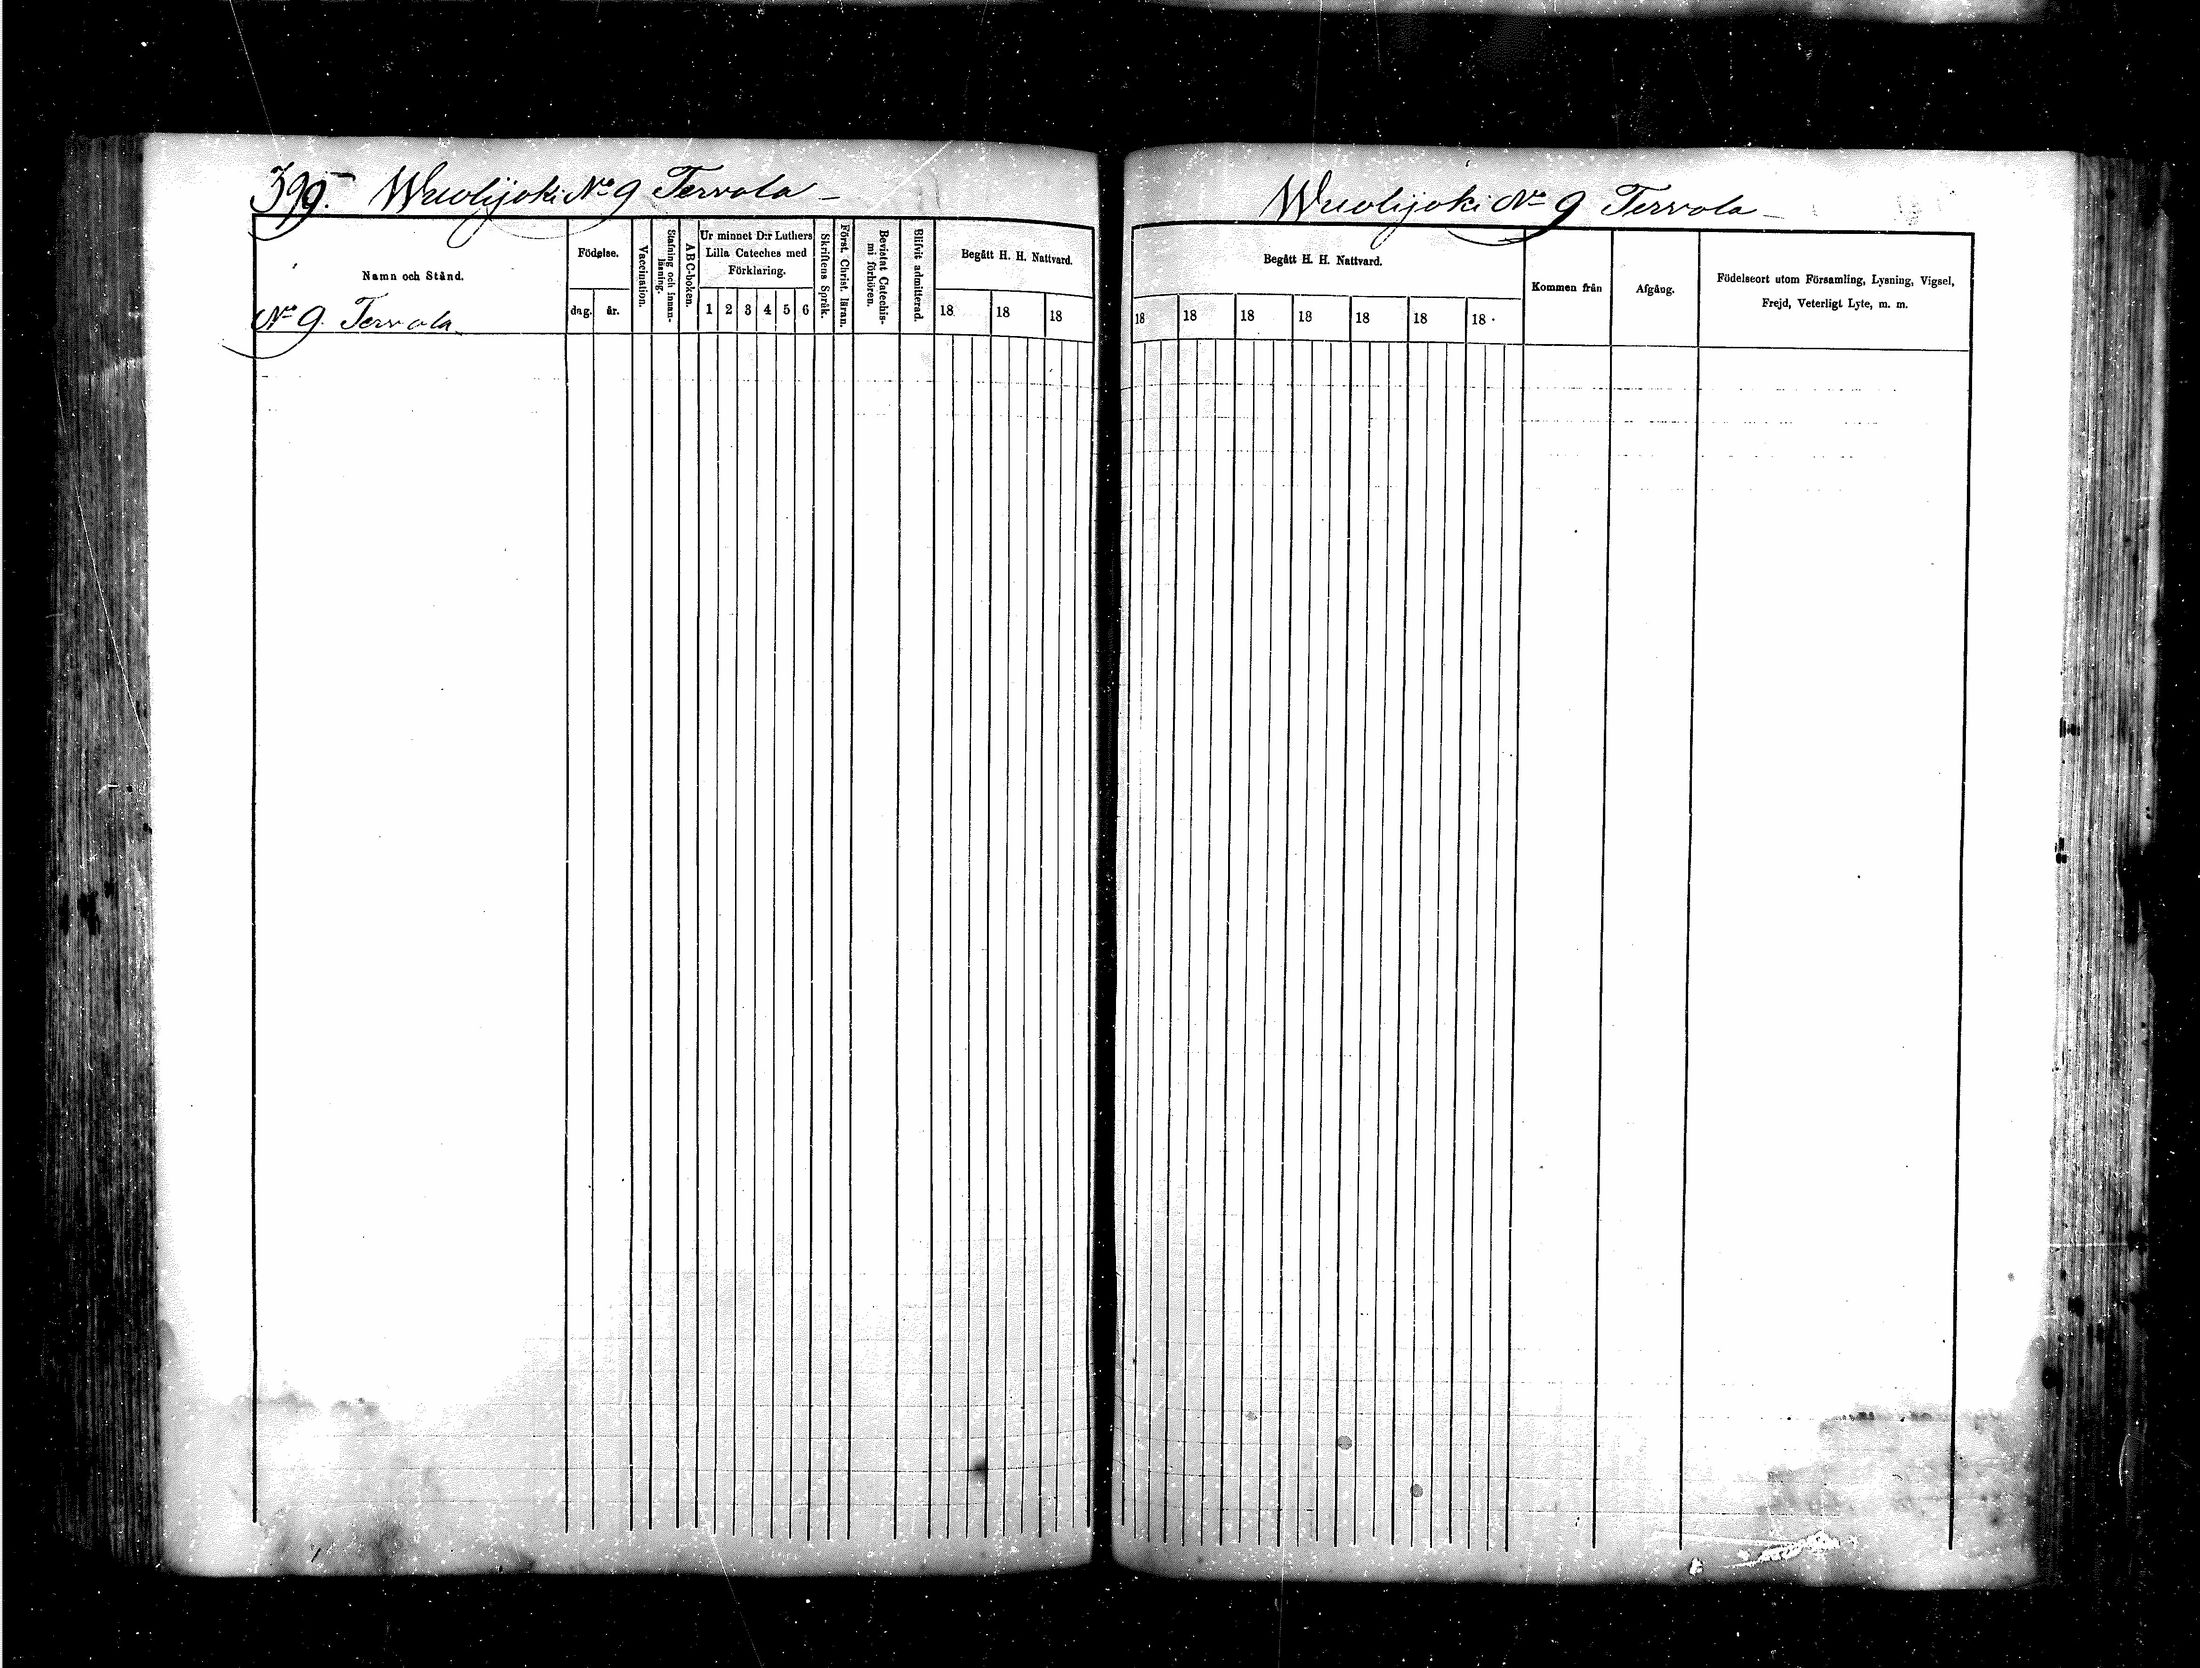 399. Wuolijoki No 9 Tervola
Namn och Stånd.
No 9. Tervola
Födelse.
dag. år.
Vaccination.
Stafning och innan-
läsning.
A B C-boken.
Ur minnet D:r Luthers
Lilla Cateches med
Förklaring.
1 2 3 4 5 6
Skriftens Språk.
Först. Christ. läran.
Bevistat Catechis-
mi förhören.
Blifvit admitterad.
Begått H. H. Nattvard.
18 18 18
Wuolijoki No 9 Tervola
Begått H. H. Nattvard.
18 18 18 18 18 18 18
Kommen från
Afgång.
Födelseort utom Församling, Lysning, Vigsel,
Frejd, Veterligt Lyte, m. m.